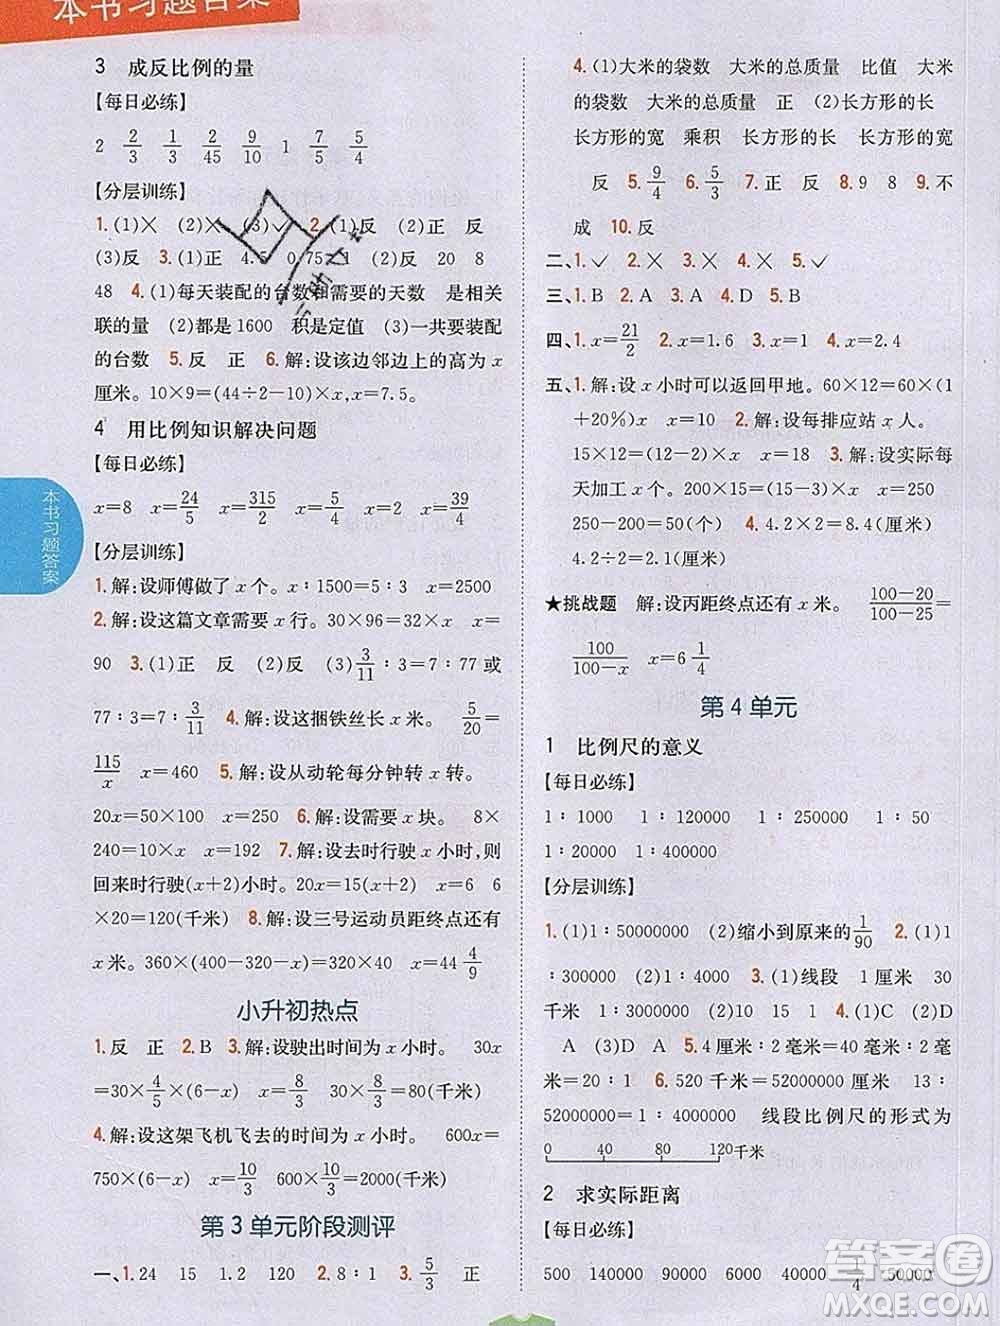 本书习题答案
3 成反比例的量
【每日必练】
2 2/3 1/3 2/45 9/10 1 7/5 5/4
【分层训练】
1.(1)× (2)× (3)✓ 2.(1)反 (2)正 反
(3)反 3.(1)正 4.5 0.75 1 (2)反 20 8
48 4.(1)每天装配的台数和需要的天数 是相关
联的量 (2)都是1600 积是定值 (3)一共要装配
的台数 5.反 正 6.解:设该边邻边上的高为x
厘米。10×9=(44÷2-10)×x,x=7.5。
4 用比例知识解决问题
【每日必练】
x=8 x=24/5 x=315/2 x=5/4 x=2 x=39/4
【分层训练】
1.解:设师傅做了x个。x:1500=5:3 x=2500
2.解:设这篇文章需要x行。30×96=32×x x=
90 3.(1)正 反 (2)反 (3)3/11:3=7:77或
77:3=7:3/11 4.解:设这捆铁丝长x米。 5/20=
115/x x=460 5.解:设从动轮每分钟转x转。
20x=50×100 x=250 6.解:设需要x块。 8×
240=10×x x=192 7.解:设去时行驶x小时,则
回来时行驶(x+2)小时。20x=15(x+2) x=6 6
×20=120(千米) 8.解:设三号运动员距终点还有
x米。360×(400-320)=320×40 x=44 4/9
小升初热点
1.反 正 2.B 3.解:设驶出时间为x小时。 30x
=30×4/5×(6-x) x=8/3 30×8/3=80(千米)
4.解:设这架飞机飞去的时间为x小时。 600x=
750×(6-x) x=10/3 600×10/3=2000(千米)
第3单元阶段测评
一、1.24 15 1.2 120 2.8:1 3.5/3 正
4.(1)大米的袋数 大米的总质量 比值 大米
的袋数 大米的总质量 正 (2)长方形的长
长方形的宽 乘积 长方形的长 长方形的宽
反 5.9/4 6.5/3 7.正 反 8.9 8 9.不
成 10.反
二、1.✓ 2.× 3.× 4.× 5.✓
三、1.B 2.A 3.B 4.A 5.B
四、1.x=21/2 2.x=1.6 3.x=1 4.x=2.4
五、1.解:设x小时可以返回甲地。60×12=60×(1
+20%)x x=10 2.解:设每排应站x人。
15×12=10×x x=18 3.解:设实际每
天加工x个。200×15=(15-3)×x x=250
250-200=50(个) 4.4.2×2=8.4(厘米)
4.2÷2=2.1(厘米)
★挑战题 解:设丙距终点还有x米。 100-20/100-25=
100/100-x x=6 1/4
第4单元
1 比例尺的意义
【每日必练】
1:1000 1:120000 1:250000 1:50
1:20000 1:400000
【分层训练】
1.(1)1:50000000 (2)缩小到原来的1/90 2.(1)1
:300000 (2)1:4000 3.(1)线段 1厘米 30
千米 1:3000000 (2)10 15 1 4.(1)C (2)D
A (3)D A 5.4厘米:2毫米=40毫米:2毫米
=20:1 6.520千米=52000000厘米 13:
52000000=1:4000000 线段比例尺的形式为
0 40 80 120千米
2 求实际距离
【每日必练】
500 140000 90000 2000
本书习题答案
答案圈
MXQE.COM